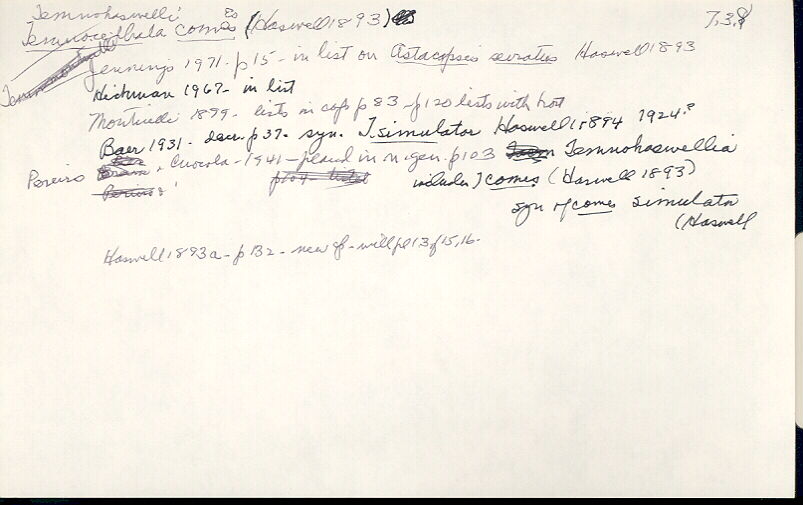 Temnohaswelli
Temnocephala comes (Haswell 1893) 7,3.8
Jennings 1971 - p15 - in list on Astacopsis serratus Haswell 1893
Hickman 1967 - in list
Monticelli 1899 - lists in cap p 83 - p 120 lists with host
Baer 1931 - descr. p 37 - syn. T. simulator Haswell 1894 1924?
Pereiro, Cuocolo - 1941 - placed in n. gen. p103 Temnohaswellia
includes comes (Haswell 1893)
syn of comes simulator
(Haswell
Haswell 1893a - p 132 - new sp - with pl 13 f 15, 16.